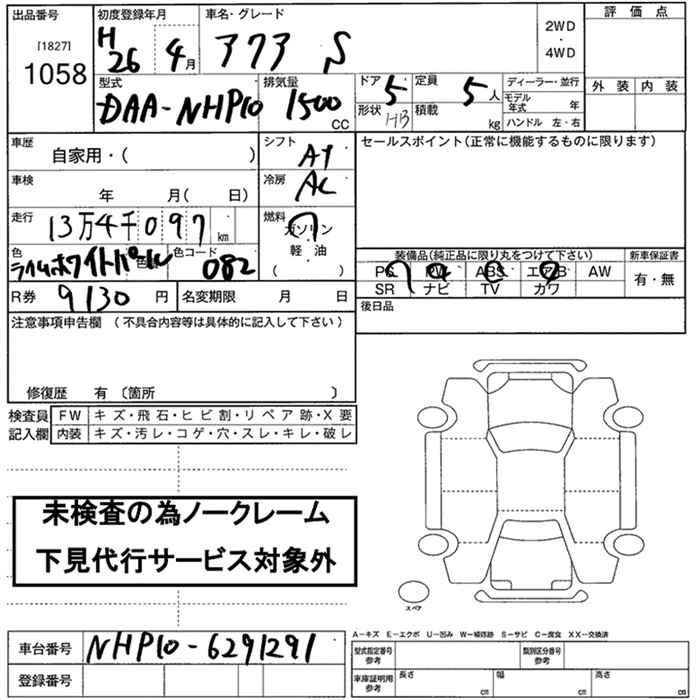 出品番号 初度登録年月 車名・グレード 評価点
[1827] H26 4月 アクア S 2WD・4WD
1058 外装 内装
型式 排気量 ドア 5 定員 5人 ディーラー・並行
DAA-NHP10 1500 CC 形状 HB 積載 kg モデル年式 年
ハンドル 左・右
車歴 シフト AT セールスポイント(正常に機能するものに限ります)
自家用・( )
車検 年 月( 日) 冷房 AC
走行 13万4千097 km 燃料 ガソリン
軽・油
( )
色 ライムホワイトパール 色 色コード 082
装備品(純正品に限り丸をつけて下さい) 新車保証書
PS PW ABS エアB AW 有・無
SR ナビ TV カワ
R券 9130円 名変期限 月 日 後日品
注意事項申告欄 (不具合内容等は具体的に記入して下さい)
修復歴 有 〔箇所 〕
検査員 FW キズ・飛石・ヒビ割・リペア跡・X要
記入欄 内装 キズ・汚レ・コゲ・穴・スレ・キレ・破レ
未検査の為ノークレーム
下見代行サービス対象外
スペア
A-キズ E-エクボ U-凹み W-補修跡 S-サビ C-腐食 XX-交換済
車台番号 NHP10-6291291 型式指定番号 参考 類別区分番号 参考
登録番号 車庫証明用 参考 長さ cm 幅 cm 高さ cm